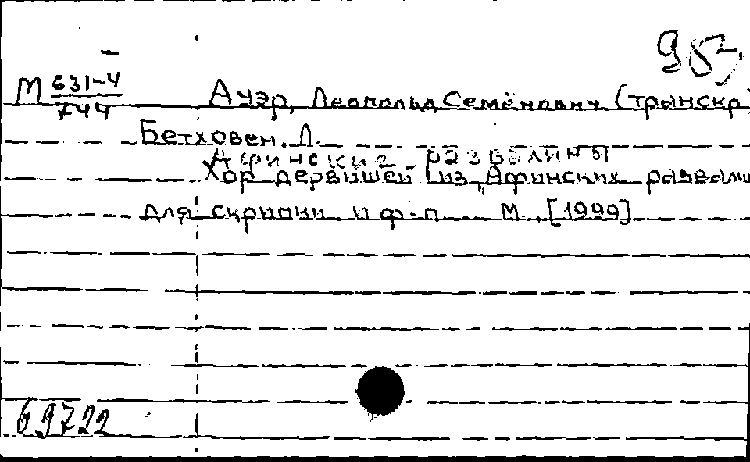 953
М 631-4
744
Ауэр, Леопольд Семёнович (транскр)
Бетховен, Л.
Афинские развалины
Хор дервишей из "Афинских развали
для скрипки и ф-п М. [1999]
69722